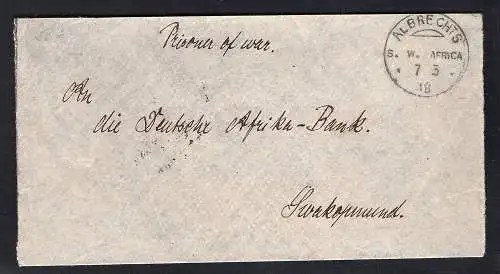 Prisoner of war.
ALBRECHTS
S. W. AFRICA
7 3
18
An
die Deutsche Afrika-Bank.
Swakopmund.